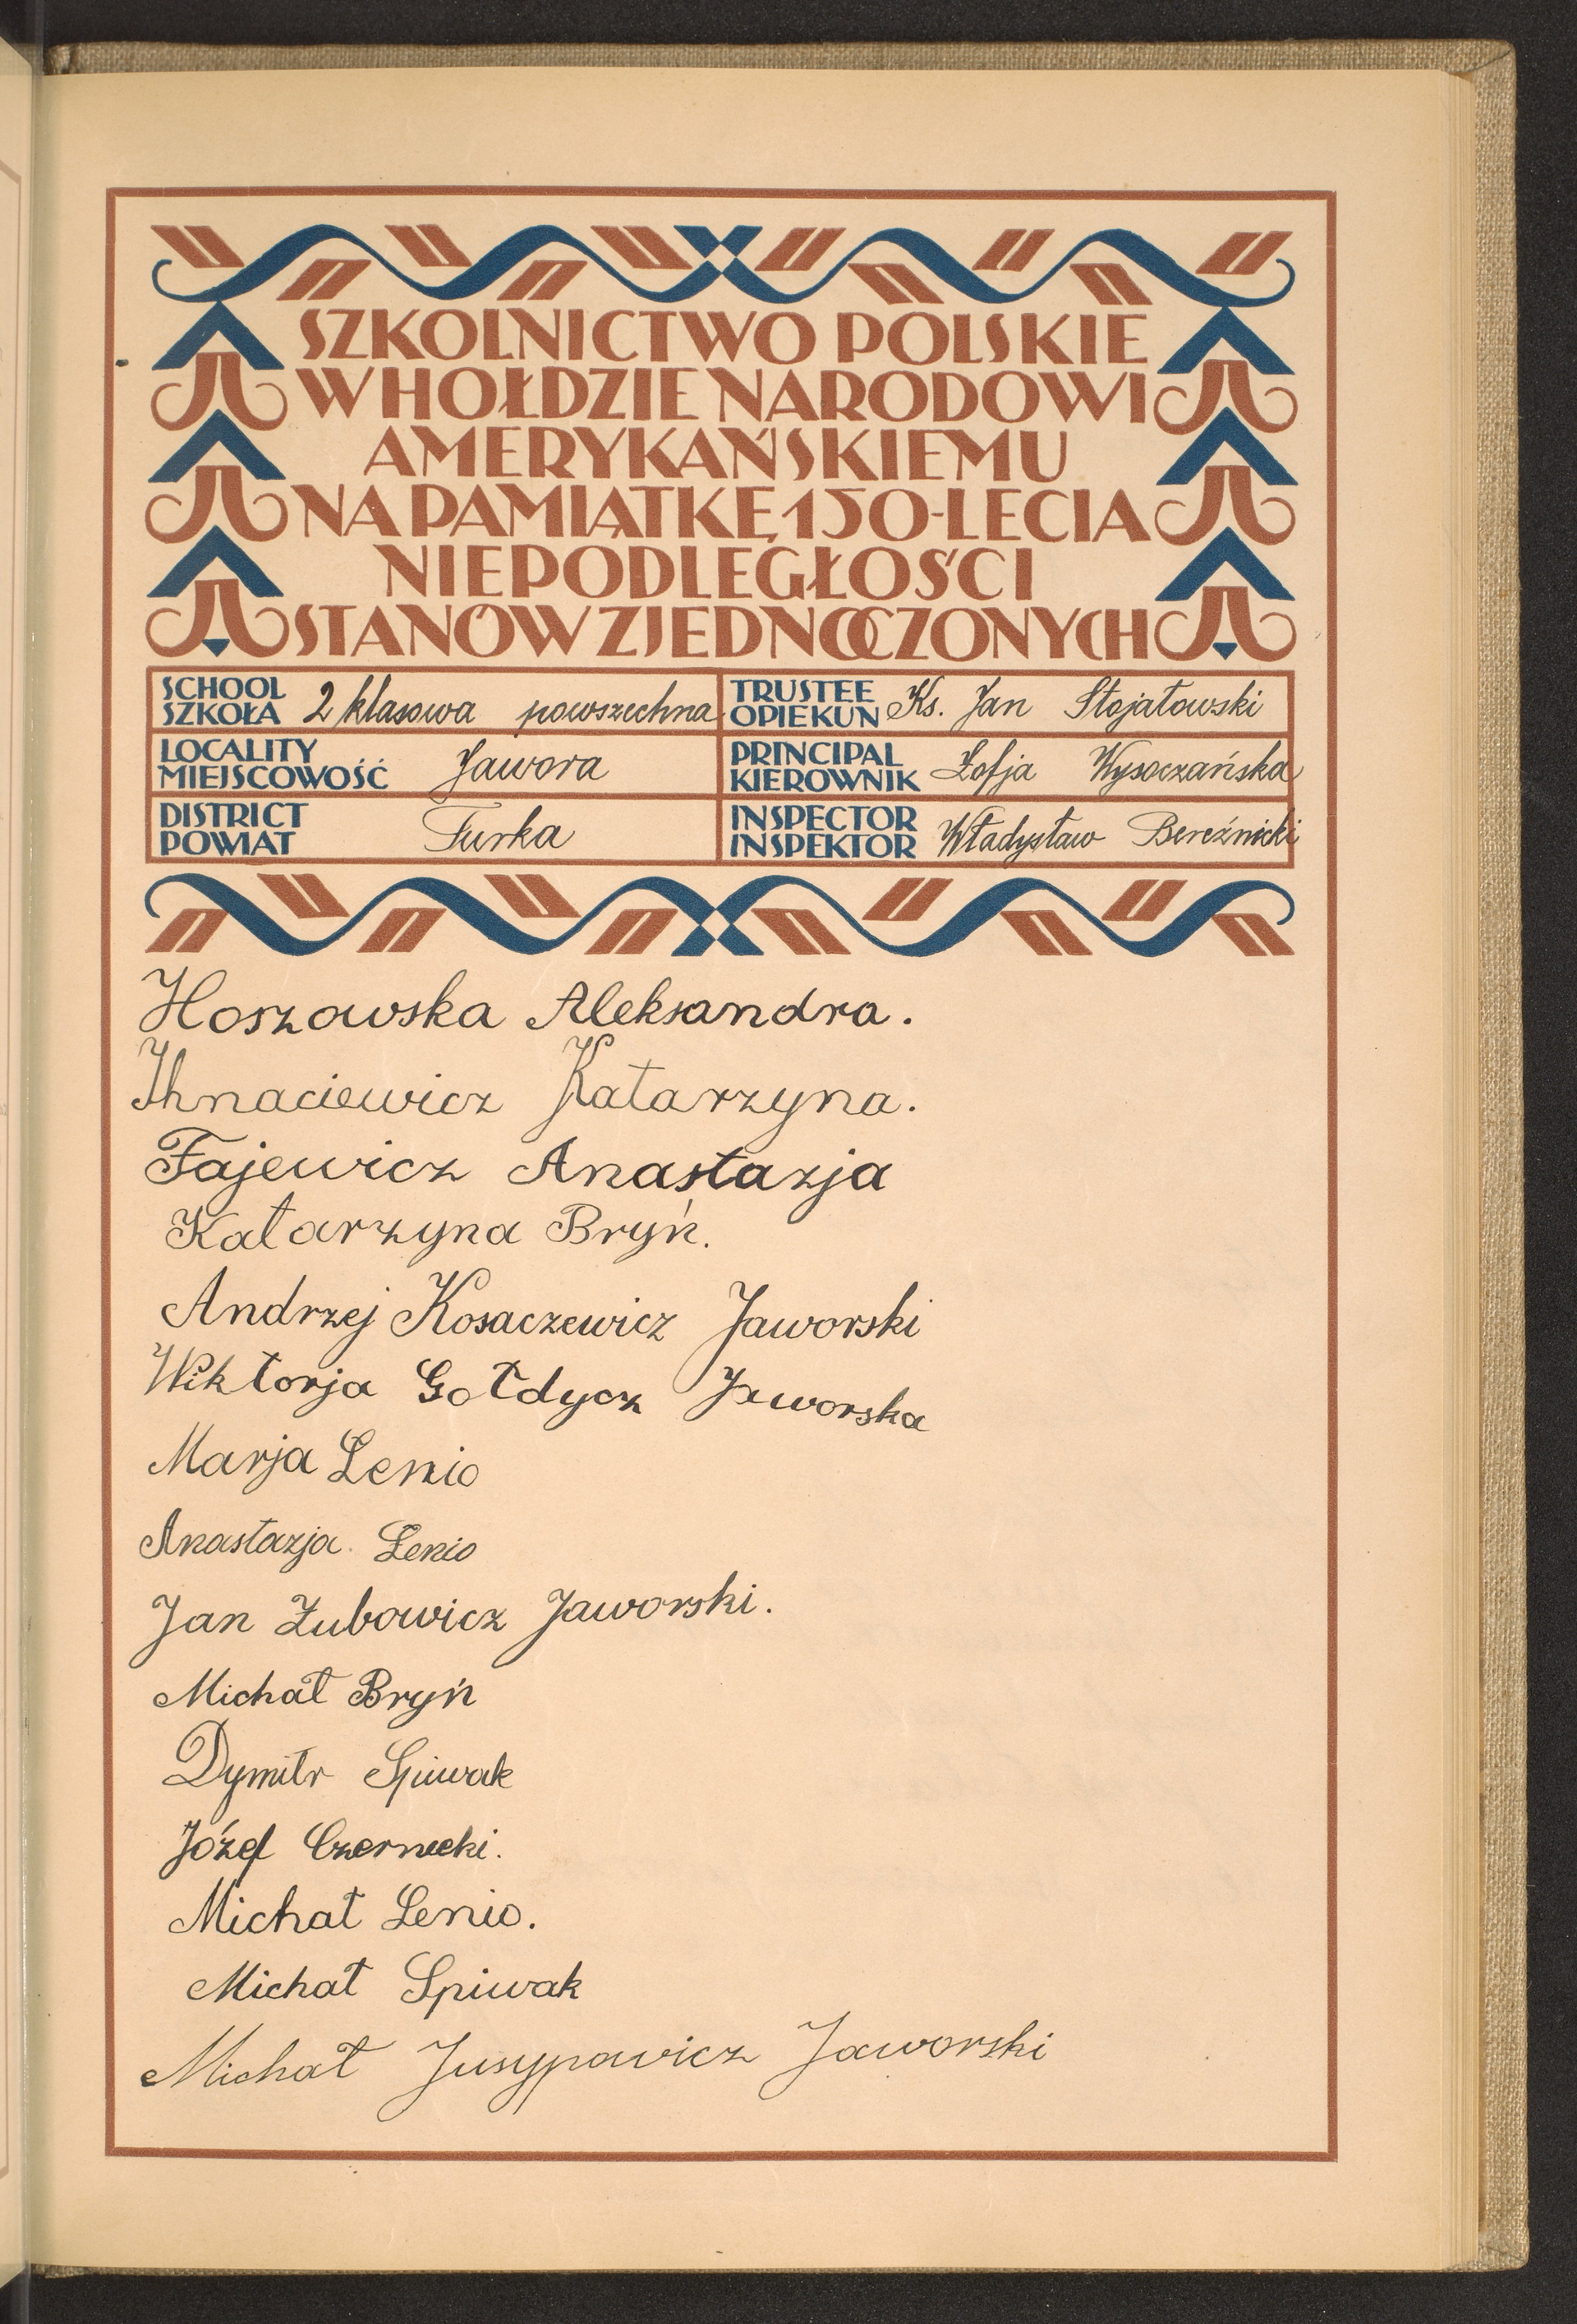 SZKOLNICTWO POLSKIE
W HOŁDZIE NARODOWI
AMERYKAŃSKIEMU
NA PAMIĄTKĘ 150-LECIA
NIEPODLEGŁOŚCI
STANÓW ZJEDNOCZONYCH
SCHOOL
SZKOŁA 2 klasowa powszechna
TRUSTEE
OPIEKUN Ks. Jan Stojałowski
LOCALITY
MIEJSCOWOŚĆ Jawora
PRINCIPAL
KIEROWNIK Zofja Wysoczańska
DISTRICT
POWIAT Turka
INSPECTOR
INSPEKTOR Władysław Bereźnicki
Hoszowska Aleksandra.
Ihnaciewicz Katarzyna.
Fajewicz Anastazja
Katarzyna Bryń.
Andrzej Kosaczewicz Jaworski
Wiktorja Gołdycz Jaworska
Marja Lenio
Anastazja Lenio
Jan Zubowicz Jaworski.
Michał Bryń
Dymitr Spiwak
Józef Czernecki.
Michał Lenio.
Michał Spiwak
Michał Jusypowicz Jaworski